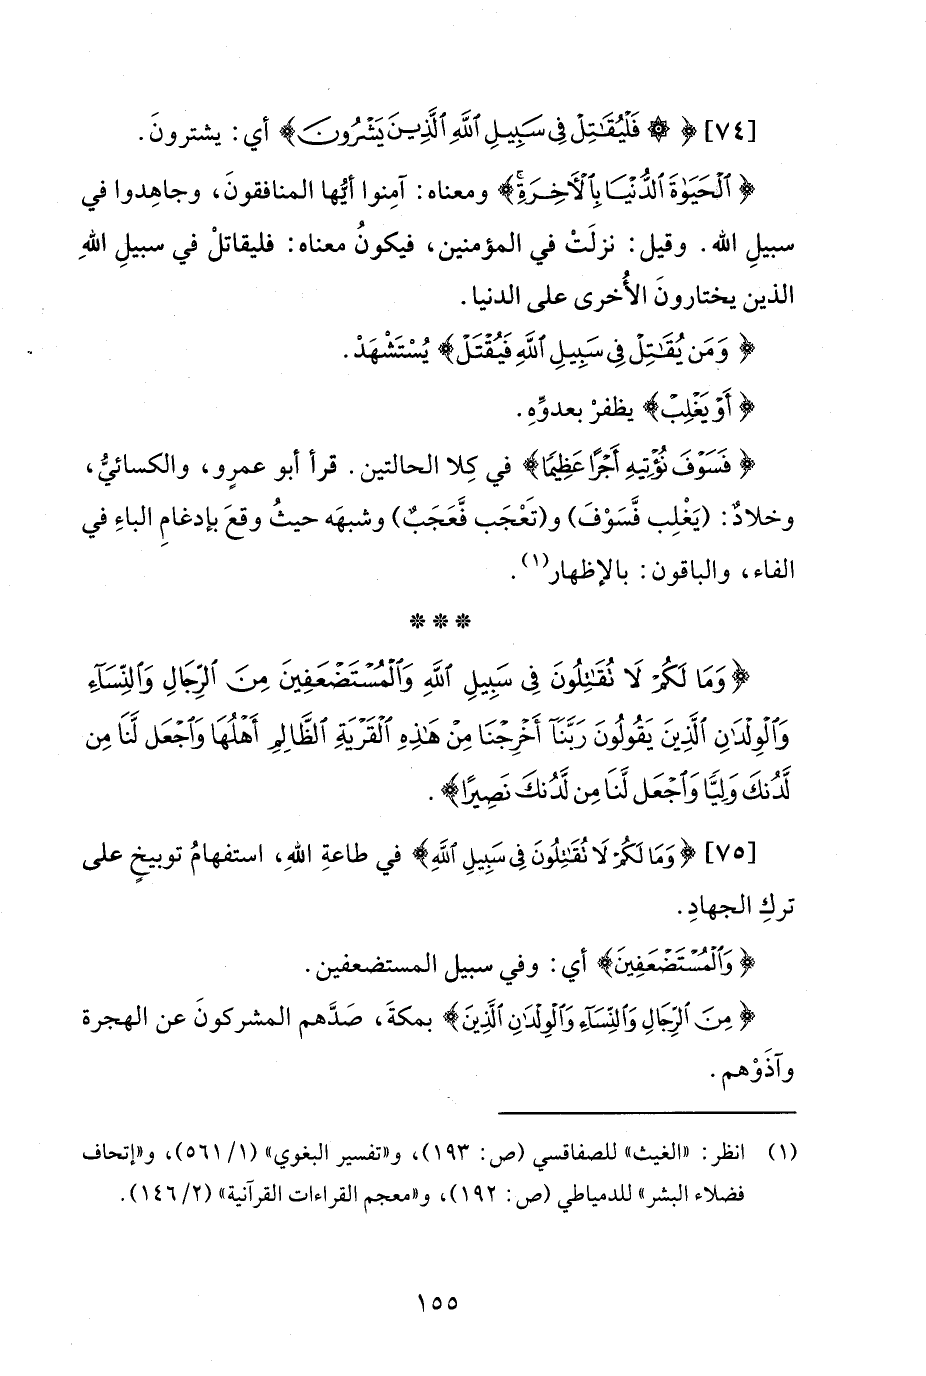 [٧٤] ﴿ ۞ فَلْيُقَٰتِلْ فِى سَبِيلِ ٱللَّهِ ٱلَّذِينَ يَشْرُونَ﴾ أي: يشترونَ.
﴿ٱلْحَيَوٰةَ ٱلدُّنْيَا بِٱلْأَخِرَةِۚ﴾ ومعناه: آمِنوا أيُّها المنافقونَ، وجاهِدوا في
سبيلِ الله. وقيل: نزلَتْ في المؤمنين، فيكونُ معناه: فليقاتلْ في سبيلِ اللهِ
الذين يختارونَ الأُخرى على الدنيا.
﴿وَمَن يُقَٰتِلْ فِى سَبِيلِ ٱللَّهِ فَيُقْتَلْ﴾ يُسْتَشْهَدْ.
﴿أَوْ يَغْلِبْ﴾ يظفرْ بعدوِّهِ.
﴿فَسَوْفَ نُؤْتِيهِ أَجْرًا عَظِيمًا﴾ في كِلا الحالتين. قرأ أبو عمرٍو، والكسائيُّ،
وخلادٌ: (يَغْلِب فَّسَوْفَ) و(تَعْجَب فَّعَجَبٌ) وشبهَه حيثُ وقعَ بإدغامِ الباءِ في
الفاء، والباقون: بالإظهار(١).
* * *
﴿وَمَا لَكُمْ لَا تُقَٰتِلُونَ فِى سَبِيلِ ٱللَّهِ وَٱلْمُسْتَضْعَفِينَ مِنَ ٱلرِّجَالِ وَٱلنِّسَآءِ
وَٱلْوِلْدَٰنِ ٱلَّذِينَ يَقُولُونَ رَبَّنَآ أَخْرِجْنَا مِنْ هَٰذِهِ ٱلْقَرْيَةِ ٱلظَّالِمِ أَهْلُهَا وَٱجْعَل لَّنَا مِن
لَّدُنكَ وَلِيًّا وَٱجْعَل لَّنَا مِن لَّدُنكَ نَصِيرًا﴾.
[٧٥] ﴿وَمَا لَكُمْ لَا تُقَٰتِلُونَ فِى سَبِيلِ ٱللَّهِ﴾ في طاعةِ اللهِ، استفهامُ توبيخٍ على
تركِ الجهادِ.
﴿وَٱلْمُسْتَضْعَفِينَ﴾ أي: وفي سبيل المستضعفين.
﴿مِنَ ٱلرِّجَالِ وَٱلنِّسَآءِ وَٱلْوِلْدَٰنِ ٱلَّذِينَ﴾ بمكةَ، صَدَّهم المشركونَ عن الهجرة
وآذَوْهم.
(١) انظر: «الغيث» للصفاقسي (ص: ١٩٣)، و«تفسير البغوي» (١/ ٥٦١)، و«إتحاف
فضلاء البشر» للدمياطي (ص: ١٩٢)، و«معجم القراءات القرآنية» (٢/ ١٤٦).
١٥٥